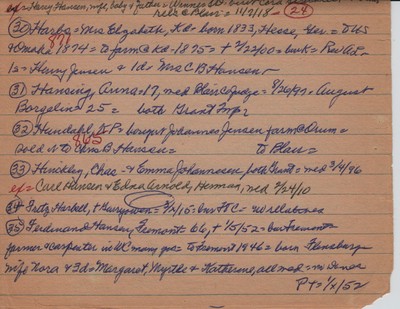 ef= Harry Hansen, wife, baby & father =
rel to Blair = 11/7/18 - 24
30) Harbs = Mrs. Elizabeth, Kd= born 1833, Hesse, Ger= to US
& Omaha 1874 = to farm @ Kd= 1875 = † 2/22/00 = bur K= Rev AP-
871
1s= Henry Jensen & 1d= Mrs C B Hansen-
31) Hansing, Anna=17, med Blair Co Judge= 9/26/97= August
Borgelin= 25= both Grant Twp=
32) Hundahl, KP= bought Johannes Jensen farm @ Orum=
865
sold it to Chris B Hansen= to Blair=
33) Hinckley, Chas- & Emma Johannesen, both Grant= med 3/4/96
ef= Carl Hansen & Edna Arnold, Herman, med 2/24/10
34 Fritz Harbell, † = 3/2/15= bur FtC= no relatives
35) Ferdinand Hansen, Fremont= 66, † 1/5/52= bur Fremont=
farmer & carpenter in WC many yrs= to Fremont 1946= born Flensburg
wife Nora & 3d= Margaret, Myrtle & Katherine, all med= in Denver
PT= 1/8/52